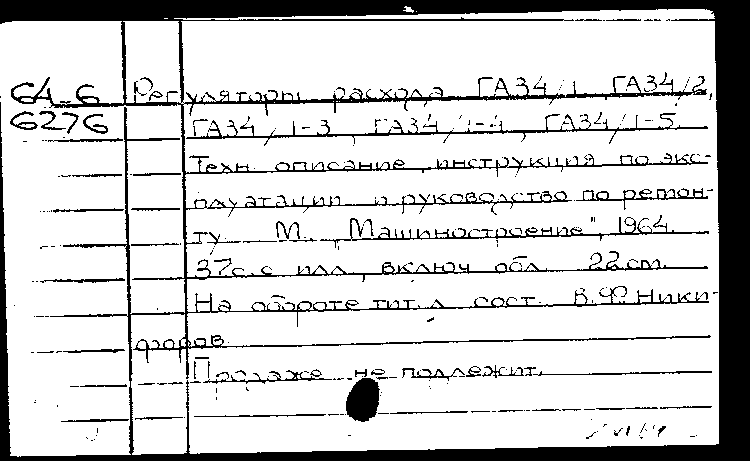 64-6 Регуляторы расхода ГА34/1, ГА34/2,
6276 ГА34/1-3, ГА34/1-4, ГА34/1-5.
Техн. описание, инструкция по экс-
плуатации и руководство по ремон-
ту. М., "Машиностроение", 1964.
37с. с илл., включ. обл. 22 см.
На обороте тит. л. сост. В.Ф. Ники-
форов.
Продаже не подлежит.